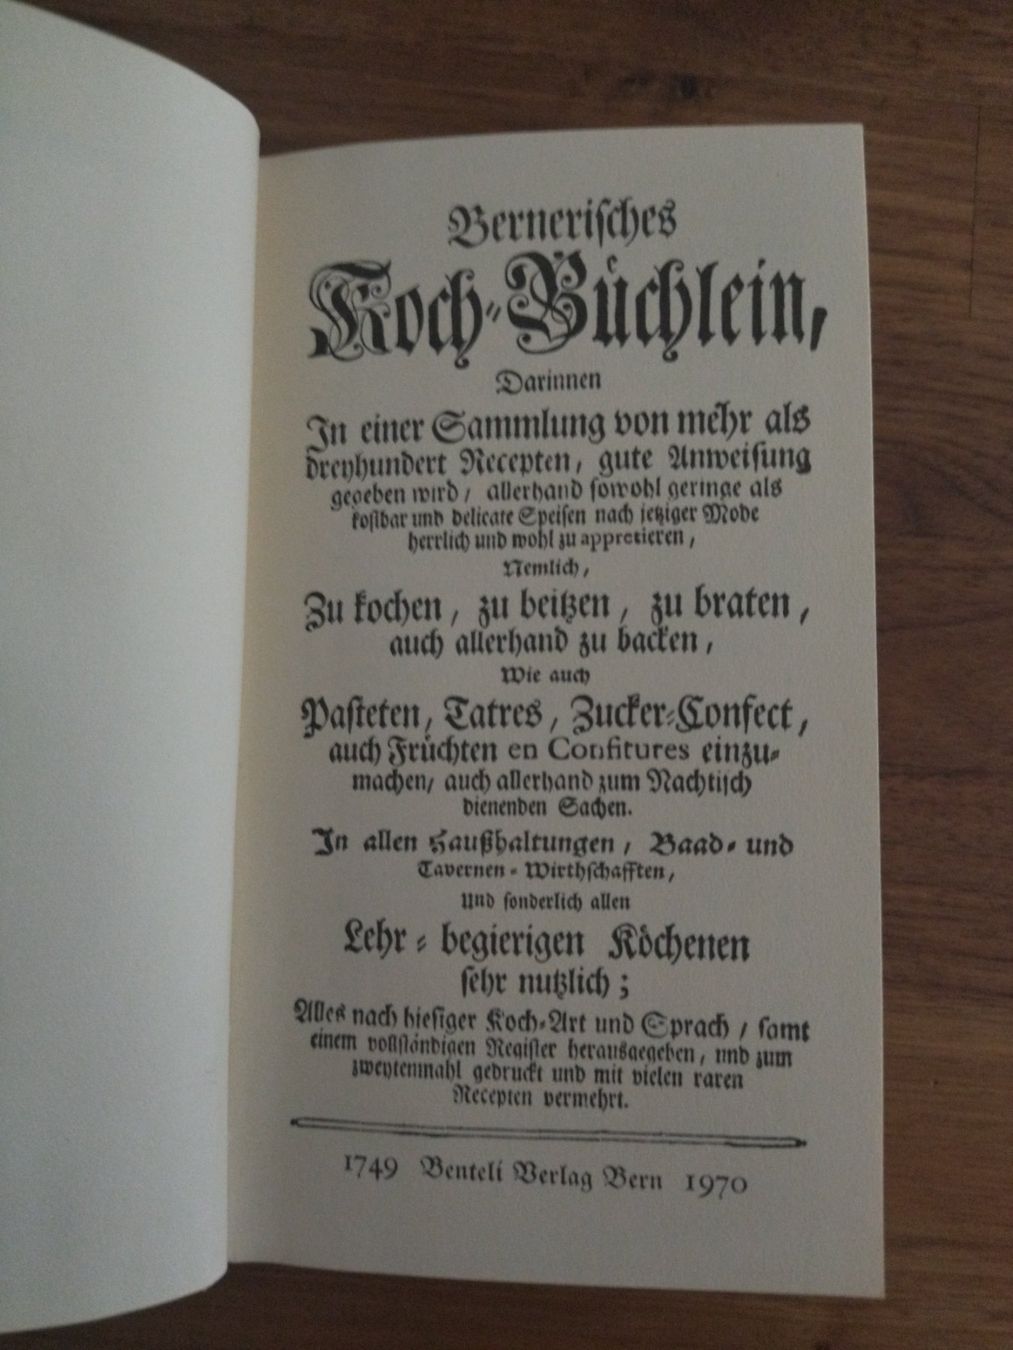 Bernerisches
Koch-Büchlein,
Darinnen
In einer Sammlung von mehr als
dreyhundert Recepten, gute Anweisung
gegeben wird, allerhand sowohl geringe als
kostbar und delicate Speisen nach jetziger Mode
herrlich und wohl zu appretieren,
Nemlich,
Zu kochen, zu beitzen, zu braten,
auch allerhand zu backen,
Wie auch
Pasteten, Tatres, Zucker-Confect,
auch Früchten en Confitures einzu-
machen, auch allerhand zum Nachtisch
dienenden Sachen.
In allen Haußhaltungen, Baad- und
Tavernen-Wirthschafften,
Und sonderlich allen
Lehr-begierigen Köchenen
sehr nutzlich;
Alles nach hiesiger Koch-Art und Sprach, samt
einem vollständigen Register herausgegeben, und zum
zweytenmahl gedruckt und mit vielen raren
Recepten vermehrt.
1749 Benteli Verlag Bern 1970